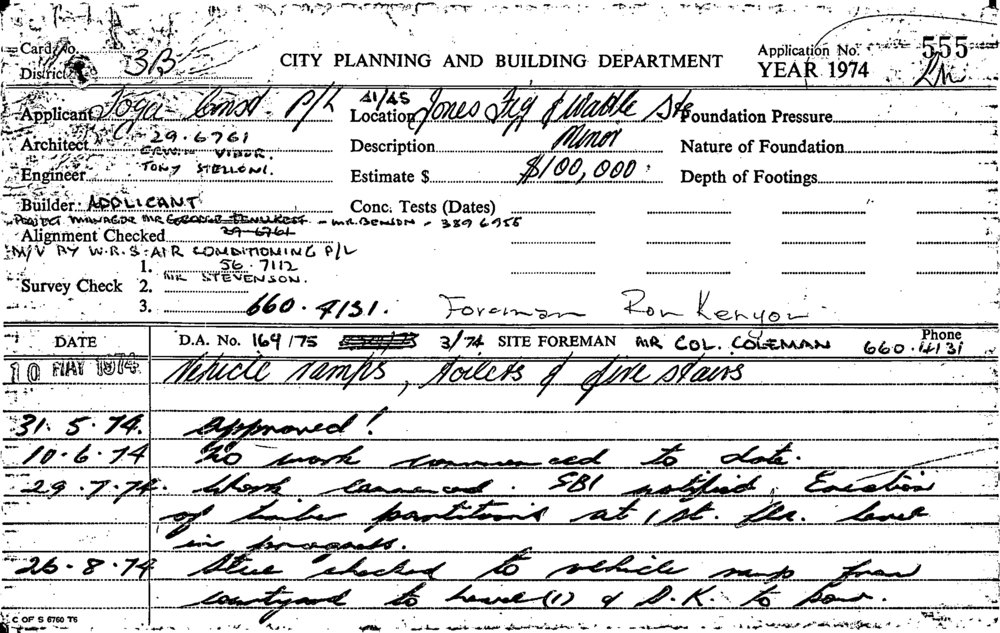 Card No.
District 3B CITY PLANNING AND BUILDING DEPARTMENT Application No. 555
YEAR 1974
Applicant Toga Const P/L Location 41/45 Jones Fig & Wattle Sts Foundation Pressure
Architect 29.6761 Description Minor Nature of Foundation
ERWIN VIDOR.
Engineer TONY STELLONI. Estimate $ $100,000 Depth of Footings
Builder APPLICANT Conc. Tests (Dates)
PROJECT MANAGER MR GEORGE - MR. BENSON - 389 6955
Alignment Checked 29-6761
M/V BY W.R.S. AIR CONDITIONING P/L
1. 56.7112
Survey Check 2. MR STEVENSON.
3. 660.4131. Foreman Ron Kenyon
DATE D.A. No. 169/75 3/74 SITE FOREMAN MR COL. COLEMAN Phone 660.4131
10 MAY 1974 Vehicle ramps, toilets & fire stairs
31.5.74. approved!
10.6.74 No work commenced to date.
29.7.74. Work commenced. SBI notified. Erection
of timber partitions at 1st. flr. level
in progress.
26.8.74 Steel checked to vehicle ramp from
courtyard to level (1) & O.K. to pour.
C OF S 6760 T6